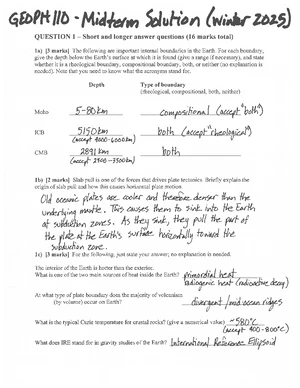 GEOPH 110 - Midterm Solution (Winter 2025)
QUESTION 1 – Short and longer answer questions (16 marks total)
1a) [3 marks] The following are important internal boundaries in the Earth. For each boundary,
give the depth below the Earth's surface at which it is found (give a range if necessary), and state
whether it is a rheological boundary, compositional boundary, both, or neither (no explanation is
needed). Note that you need to know what the acronyms stand for.
Depth Type of boundary
(rheological, compositional, both, neither)
Moho 5-80km compositional (accept "both")
ICB 5150km both (accept "rheological")
(accept 4000-6000km)
CMB 2891km both
(accept 2400-3500km)
1b) [2 marks] Slab pull is one of the forces that drives plate tectonics. Briefly explain the
origin of slab pull and how this causes horizontal plate motion.
Old oceanic plates are cooler and therefore denser than the
underlying mantle. This causes them to sink into the Earth
at subduction zones. As they sink, they pull the part of
the plate at the Earth's surface horizontally toward the
subduction zone.
1c) [3 marks] For the following, just state your answer; no explanation is needed.
The interior of the Earth is hotter than the exterior.
What is one of the two main sources of heat inside the Earth? primordial heat
radiogenic heat (radioactive decay)
At what type of plate boundary does the majority of volcanism
(by volume) occur on Earth? divergent/mid ocean ridges
What is the typical Curie temperature for crustal rocks? (give a numerical value) ~580°C
(accept 400-800°C)
What does IRE stand for in gravity studies of the Earth? International Reference Ellipsoid